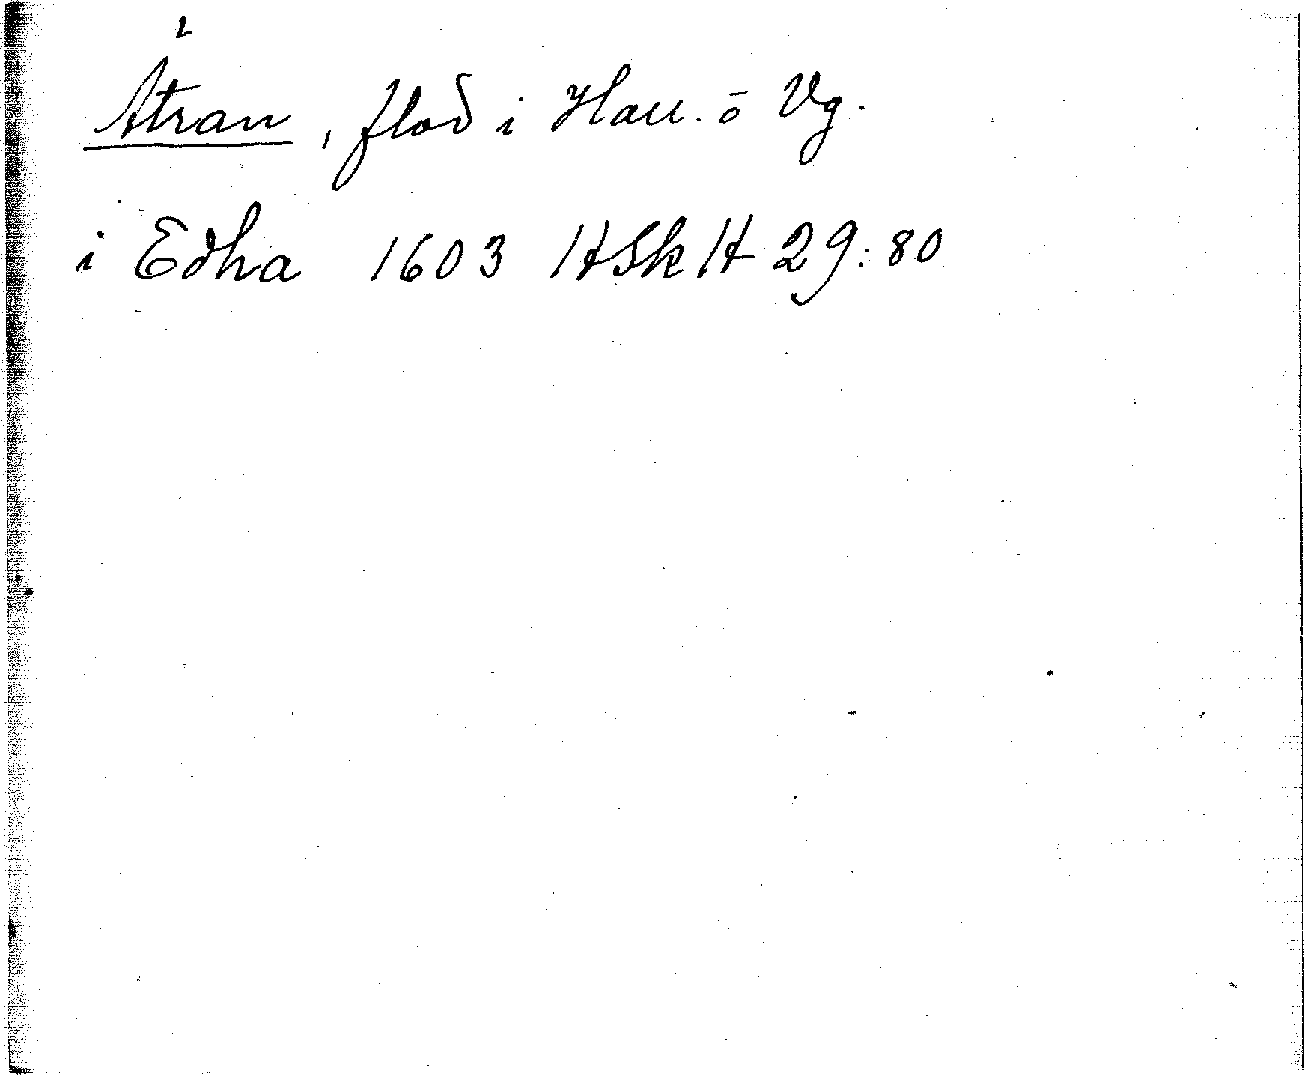 Ätran, flod i Hall. o Vg.
i Edha 1603 HSkH 29:80